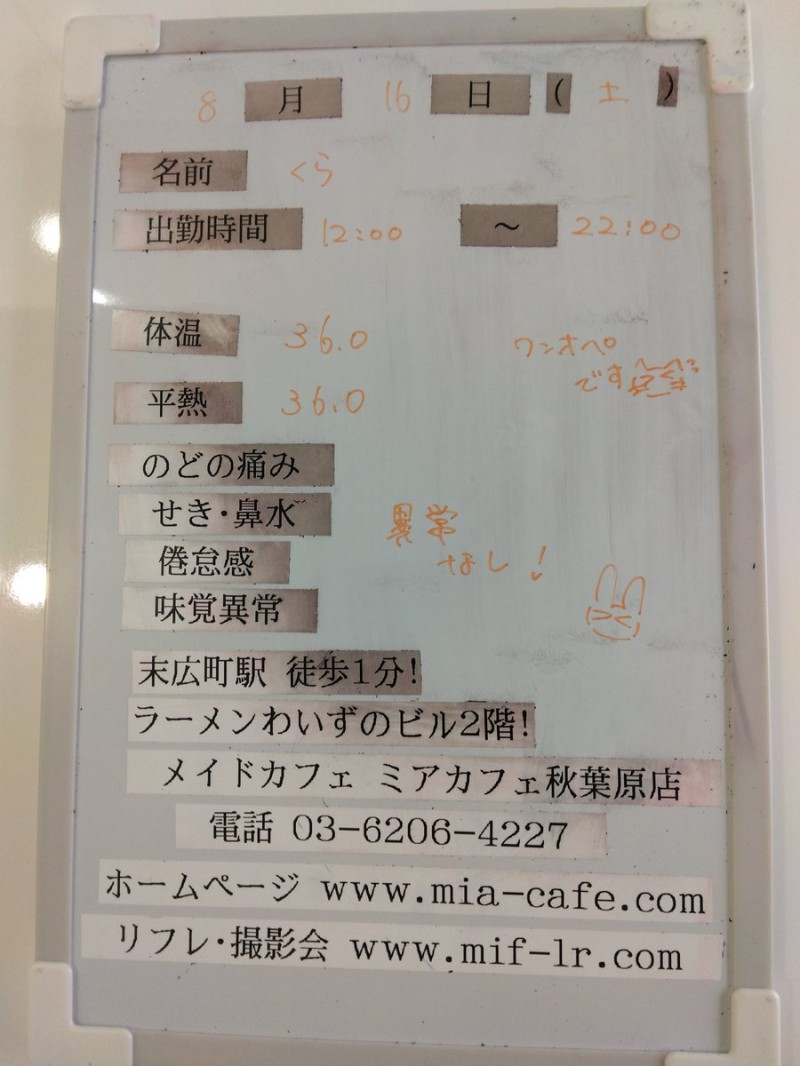 8月16日(土)
名前 くら
出勤時間 12:00 ～ 22:00
体温 36.0
平熱 36.0
ワンオペ
です
のどの痛み
せき・鼻水
倦怠感
味覚異常
異常
なし!
末広町駅 徒歩1分!
ラーメンわいずのビル2階!
メイドカフェ ミアカフェ秋葉原店
電話 03-6206-4227
ホームページ www.mia-cafe.com
リフレ・撮影会 www.mif-lr.com